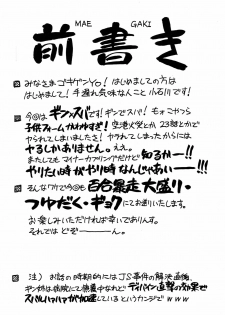 MAE GAKI
前書き
みなさまゴキゲンYo! はじめましての方は
はじめまして! 手遅れ気味なんこと 小石川です!
今回は ギンスバ です! ギンでスバ! もぉこやつら
子供フォームかわゆすぎ! 空港火災とか、23話とかで
やられてしまいましたさ! ヤられてしまったからには
ヤるしかありません。ええ。
またしても、マイナーカプリングだけど 知るかー!!
やりたい時がやり時なんじゃあいー!!!
そんなワケで今回も 百合暴走大盛り・
つゆだく・ギョク にてお送りいたします。
お楽しみいただければ 幸いでありんす。
それでは どぞーーーん。
注) お話の時期的には JS事件の解決直後、
ギン姉は病院にて 療養中なれど ディバイン直撃の効果で
スバルハァハァが加速 しているというカンジで www